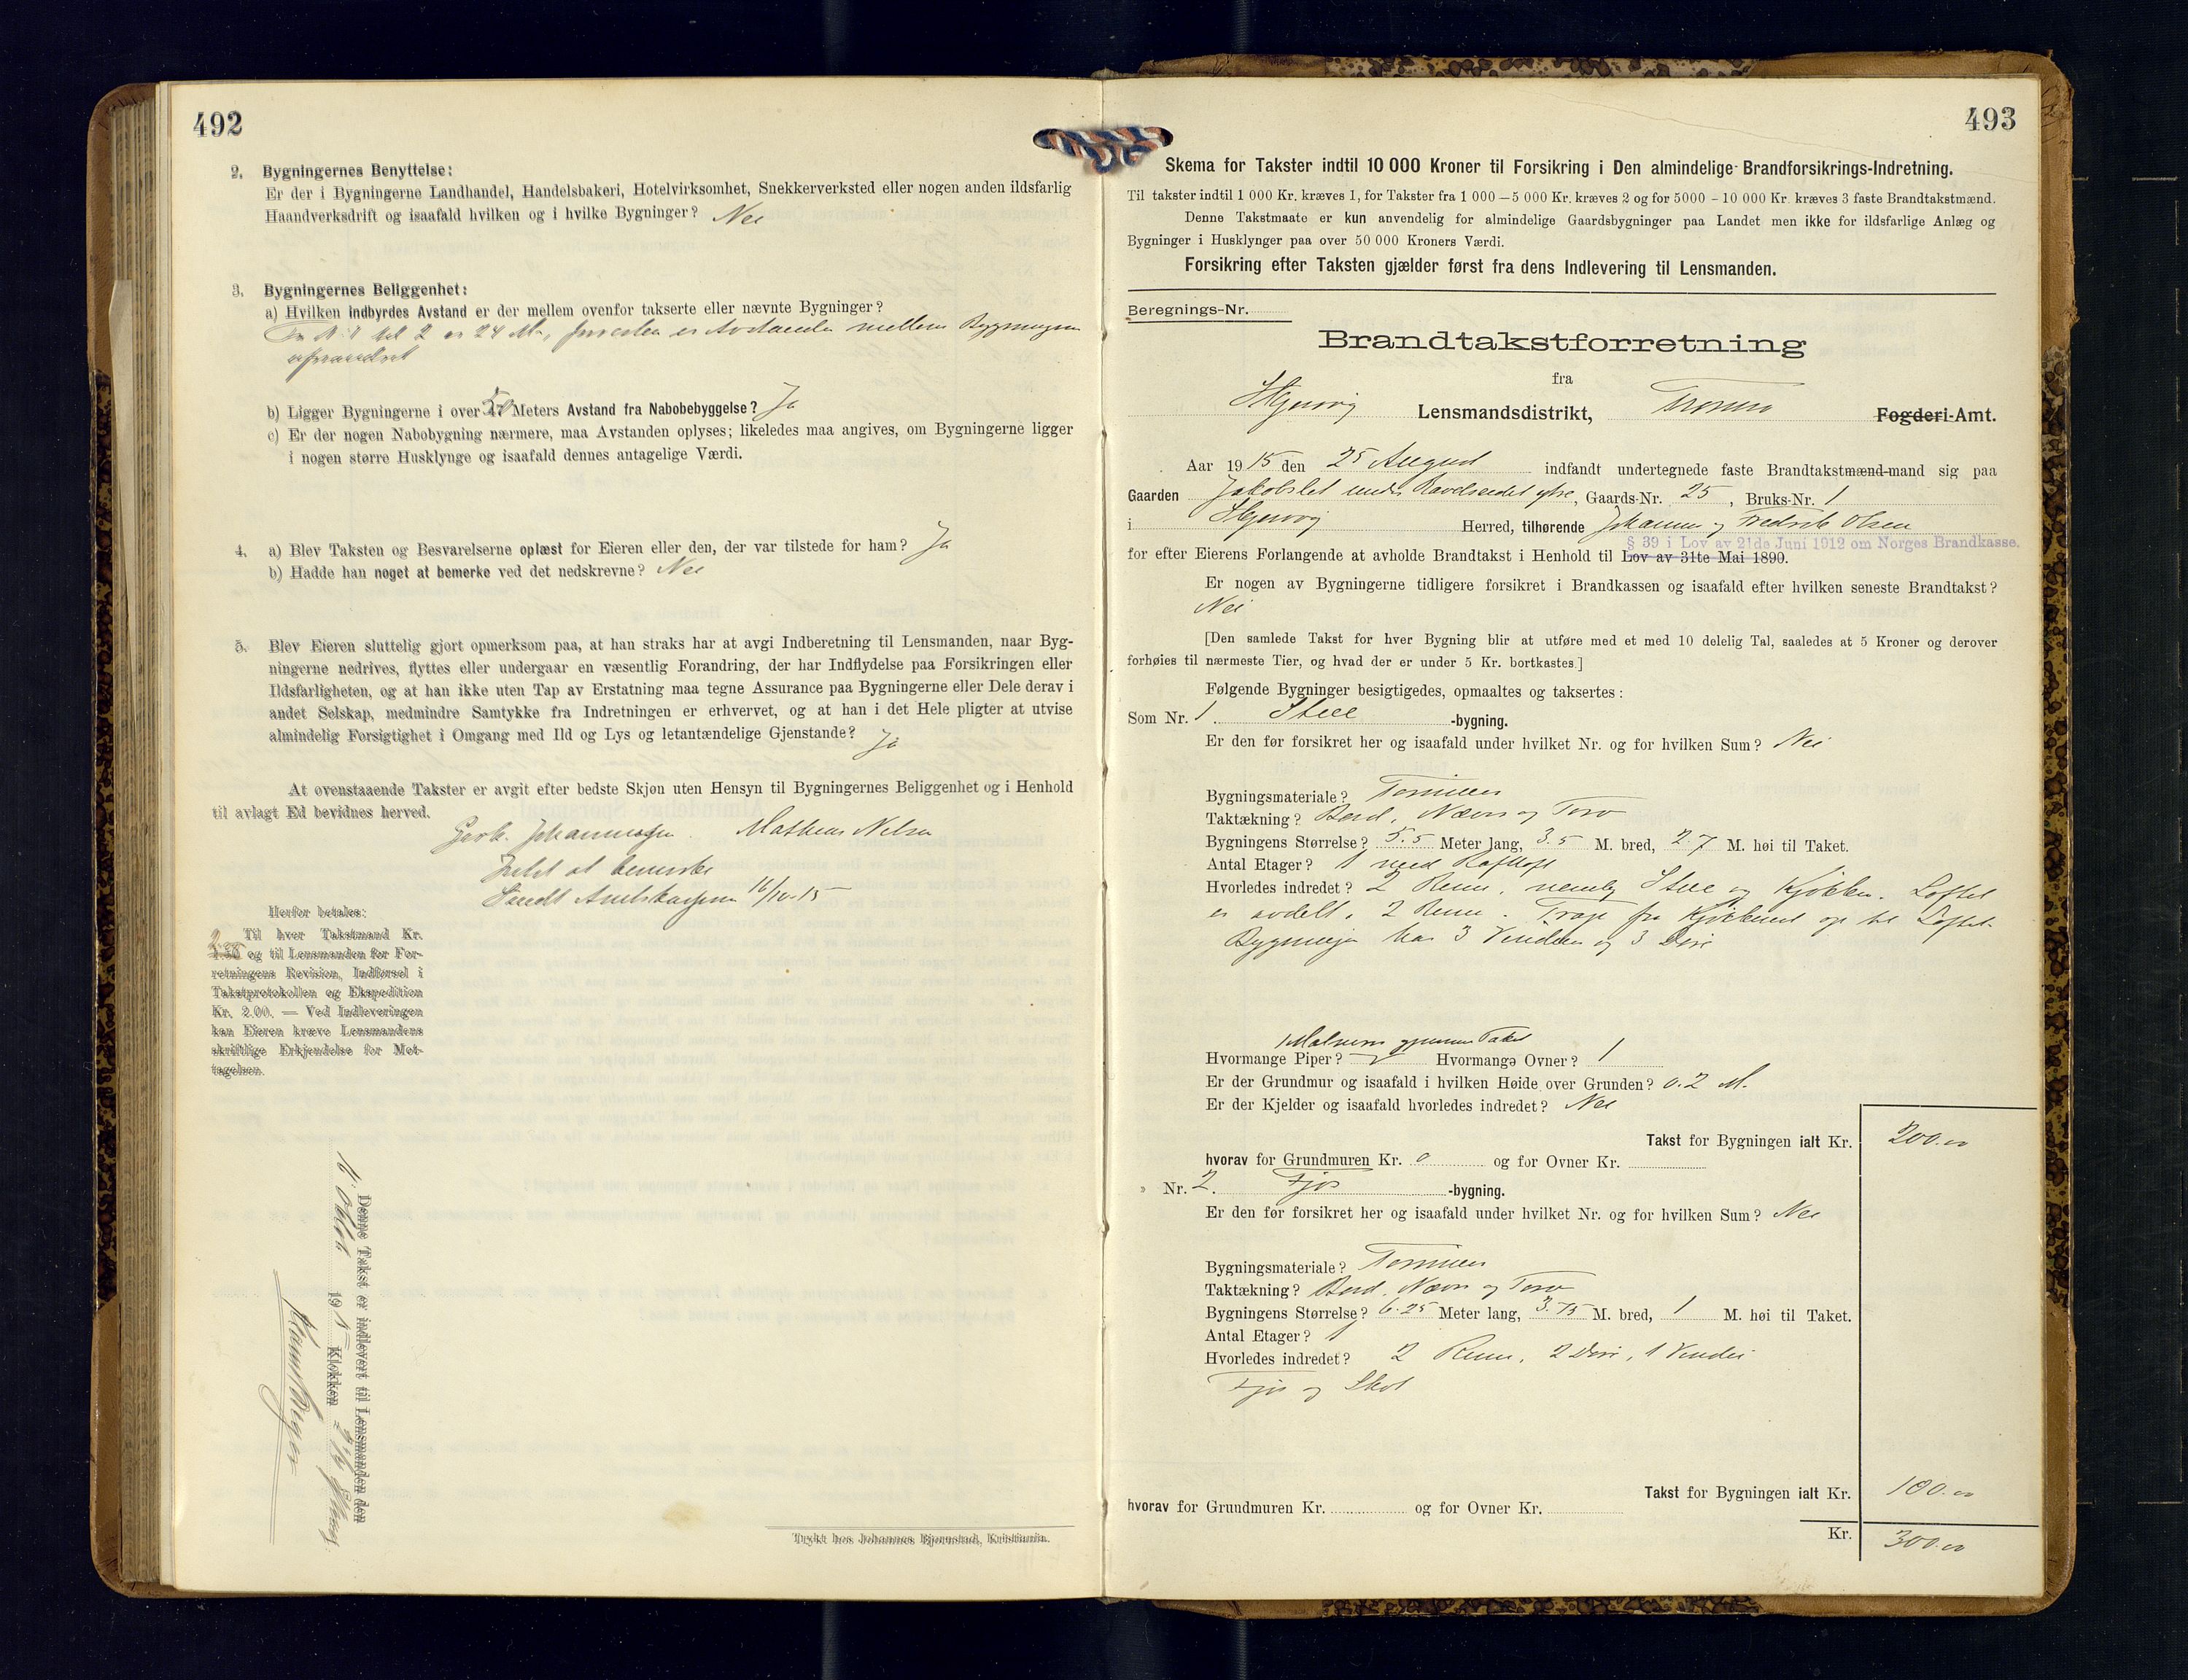 492
2. Bygningernes Benyttelse:
Er der i Bygningerne Landhandel, Handelsbakeri, Hotelvirksomhet, Snekkerverksted eller nogen anden ildsfarlig
Haandverksdrift og isaafald hvilken og i hvilke Bygninger? Nei
3. Bygningernes Beliggenhet:
a) Hvilken indbyrdes Avstand er der mellem ovenfor takserte eller nævnte Bygninger?
Fra N. 1 til 2 er 24 M., forøvrig er Avstanden mellem Bygningene
uforandret
b) Ligger Bygningerne i over 50 Meters Avstand fra Nabobebyggelse? Ja
c) Er der nogen Nabobygning nærmere, maa Avstanden oplyses; likeledes maa angives, om Bygningerne ligger
i nogen større Husklynge og isaafald dennes antagelige Værdi.
4. a) Blev Taksten og Besvarelserne oplæst for Eieren eller den, der var tilstede for ham? Ja
b) Hadde han noget at bemerke ved det nedskrevne? Nei
5. Blev Eieren sluttelig gjort opmerksom paa, at han straks har at avgi Indberetning til Lensmanden, naar Byg-
ningerne nedrives, flyttes eller undergaar en væsentlig Forandring, der har Indflydelse paa Forsikringen eller
Ildsfarligheten, og at han ikke uten Tap av Erstatning maa tegne Assurance paa Bygningerne eller Dele derav i
andet Selskap, medmindre Samtykke fra Indretningen er erhvervet, og at han i det Hele pligter at utvise
almindelig Forsigtighet i Omgang med Ild og Lys og letantændelige Gjenstande? Ja
At ovenstaaende Takster er avgit efter bedste Skjøn uten Hensyn til Bygningernes Beliggenhet og i Henhold
til avlagt Ed bevidnes herved.
Johannessen. Matheus Nilsen
Intet at bemerke
Sendt Amtskassereren 16/10-15
Herfor betales:
Til hver Takstmand Kr.
og til Lensmanden for For-
retningens Revision, Indførsel i
Takstprotokollen og Ekspedition
Kr. 2.00. — Ved Indleveringen
kan Eieren kræve Lensmandens
skriftlige Erkjendelse for Mot-
tagelsen.
Denne Takst er indlevert til Lensmanden den
16. Oktbr. 1915 Klokken
Trykt hos Johannes Bjørnstad, Kristiania.
493
Skema for Takster indtil 10 000 Kroner til Forsikring i Den almindelige Brandforsikrings-Indretning.
Til takster indtil 1 000 Kr. kræves 1, for Takster fra 1 000 — 5 000 Kr. kræves 2 og for 5000 - 10 000 Kr. kræves 3 faste Brandtakstmænd.
Denne Takstmaate er kun anvendelig for almindelige Gaardsbygninger paa Landet men ikke for ildsfarlige Anlæg og
Bygninger i Husklynger paa over 50 000 Kroners Værdi.
Forsikring efter Taksten gjælder først fra dens Indlevering til Lensmanden.
Beregnings-Nr.
Brandtakstforretning
fra
Helgøy Lensmandsdistrikt, Tromsø Fogderi-Amt.
Aar 1915 den 25 August indfandt undertegnede faste Brandtakstmænd-mand sig paa
Gaarden Jakobslet under Ravelseidet ytre, Gaards-Nr. 25, Bruks-Nr. 1
i Helgøy Herred, tilhørende Johannes og Fredrik Olsen
§ 39 i Lov av 21de Juni 1912 om Norges Brandkasse.
for efter Eierens Forlangende at avholde Brandtakst i Henhold til Lov av 31te Mai 1890.
Er nogen av Bygningerne tidligere forsikret i Brandkassen og isaafald efter hvilken seneste Brandtakst?
Nei
[Den samlede Takst for hver Bygning blir at utføre med et med 10 delelig Tal, saaledes at 5 Kroner og derover
forhøies til nærmeste Tier, og hvad der er under 5 Kr. bortkastes.]
Følgende Bygninger besigtigedes, opmaaltes og taksertes:
Som Nr. 1. Stue -bygning.
Er den før forsikret her og isaafald under hvilket Nr. og for hvilken Sum? Nei
Bygningsmateriale? Tømmer
Taktækning? Bord, Næver og Torv
Bygningens Størrelse? 5.5 Meter lang, 3.5 M. bred, 2.7 M. høi til Taket.
Antal Etager? 1 med Røstloft
Hvorledes indredet? 2 Rum, nemlig Stue og Kjøkken. Loftet
er avdelt i 2 Rum. Trap fra Kjøkkenet op til Loftet.
Bygningen har 3 Vinduer og 3 Døre
1 gjennem Taket
Hvormange Piper? Hvormange Ovner? 1
Er der Grundmur og isaafald i hvilken Høide over Grunden? 0.2 M.
Er der Kjelder og isaafald hvorledes indredet? Nei
Takst for Bygningen ialt Kr. 200.00
hvorav for Grundmuren Kr. 0 og for Ovner Kr.
» Nr. 2. Fjøs -bygning.
Er den før forsikret her og isaafald under hvilket Nr. og for hvilken Sum? Nei
Bygningsmateriale? Tømmer
Taktækning? Bord, Næver og Torv
Bygningens Størrelse? 6.25 Meter lang, 3.75 M. bred, 1 M. høi til Taket.
Antal Etager? 1
Hvorledes indredet? 2 Rum, 2 Døre, 1 Vindu
Fjøs og Skot
Takst for Bygningen ialt Kr. 100.00
hvorav for Grundmuren Kr. og for Ovner Kr.
Kr. 300.00